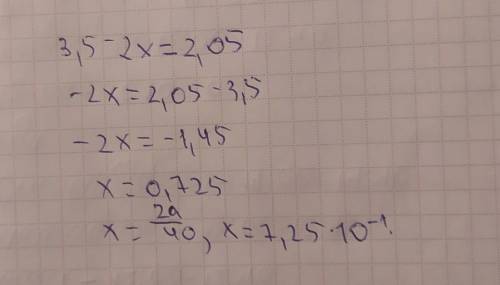 3,5-2x=2,05
-2x=2,05-3,5
-2x=-1,45
x=0,725
x=29/40, x=7,25·10⁻¹.